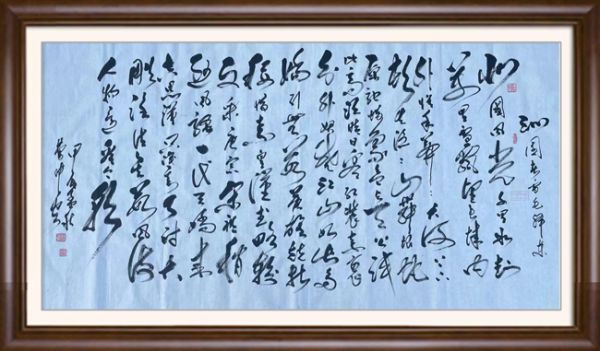 沁园春雪毛泽东
北国风光千里冰封
万里雪飘望长城内
外惟余莽莽大河上下
顿失滔滔山舞银蛇
原驰蜡象欲与天公试
比高须晴日看红装素裹
分外妖娆江山如此多
娇引无数英雄竞折
腰惜秦皇汉武略输
文采唐宗宋祖稍
逊风骚一代天骄成
吉思汗只识弯弓射大
雕俱往矣数风流
人物还看今朝